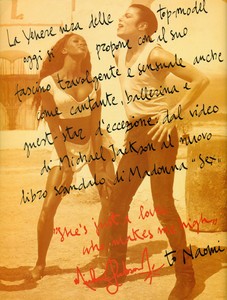 La Venere nera delle top-model
oggi si propone con il suo
fascino travolgente e sensuale anche
come cantante, ballerina e
guest-star d'eccezione dal video
di Michael Jackson al nuovo
libro scandalo di Madonna "Sex"
"She's just a lover
who makes me high"
to Naomi